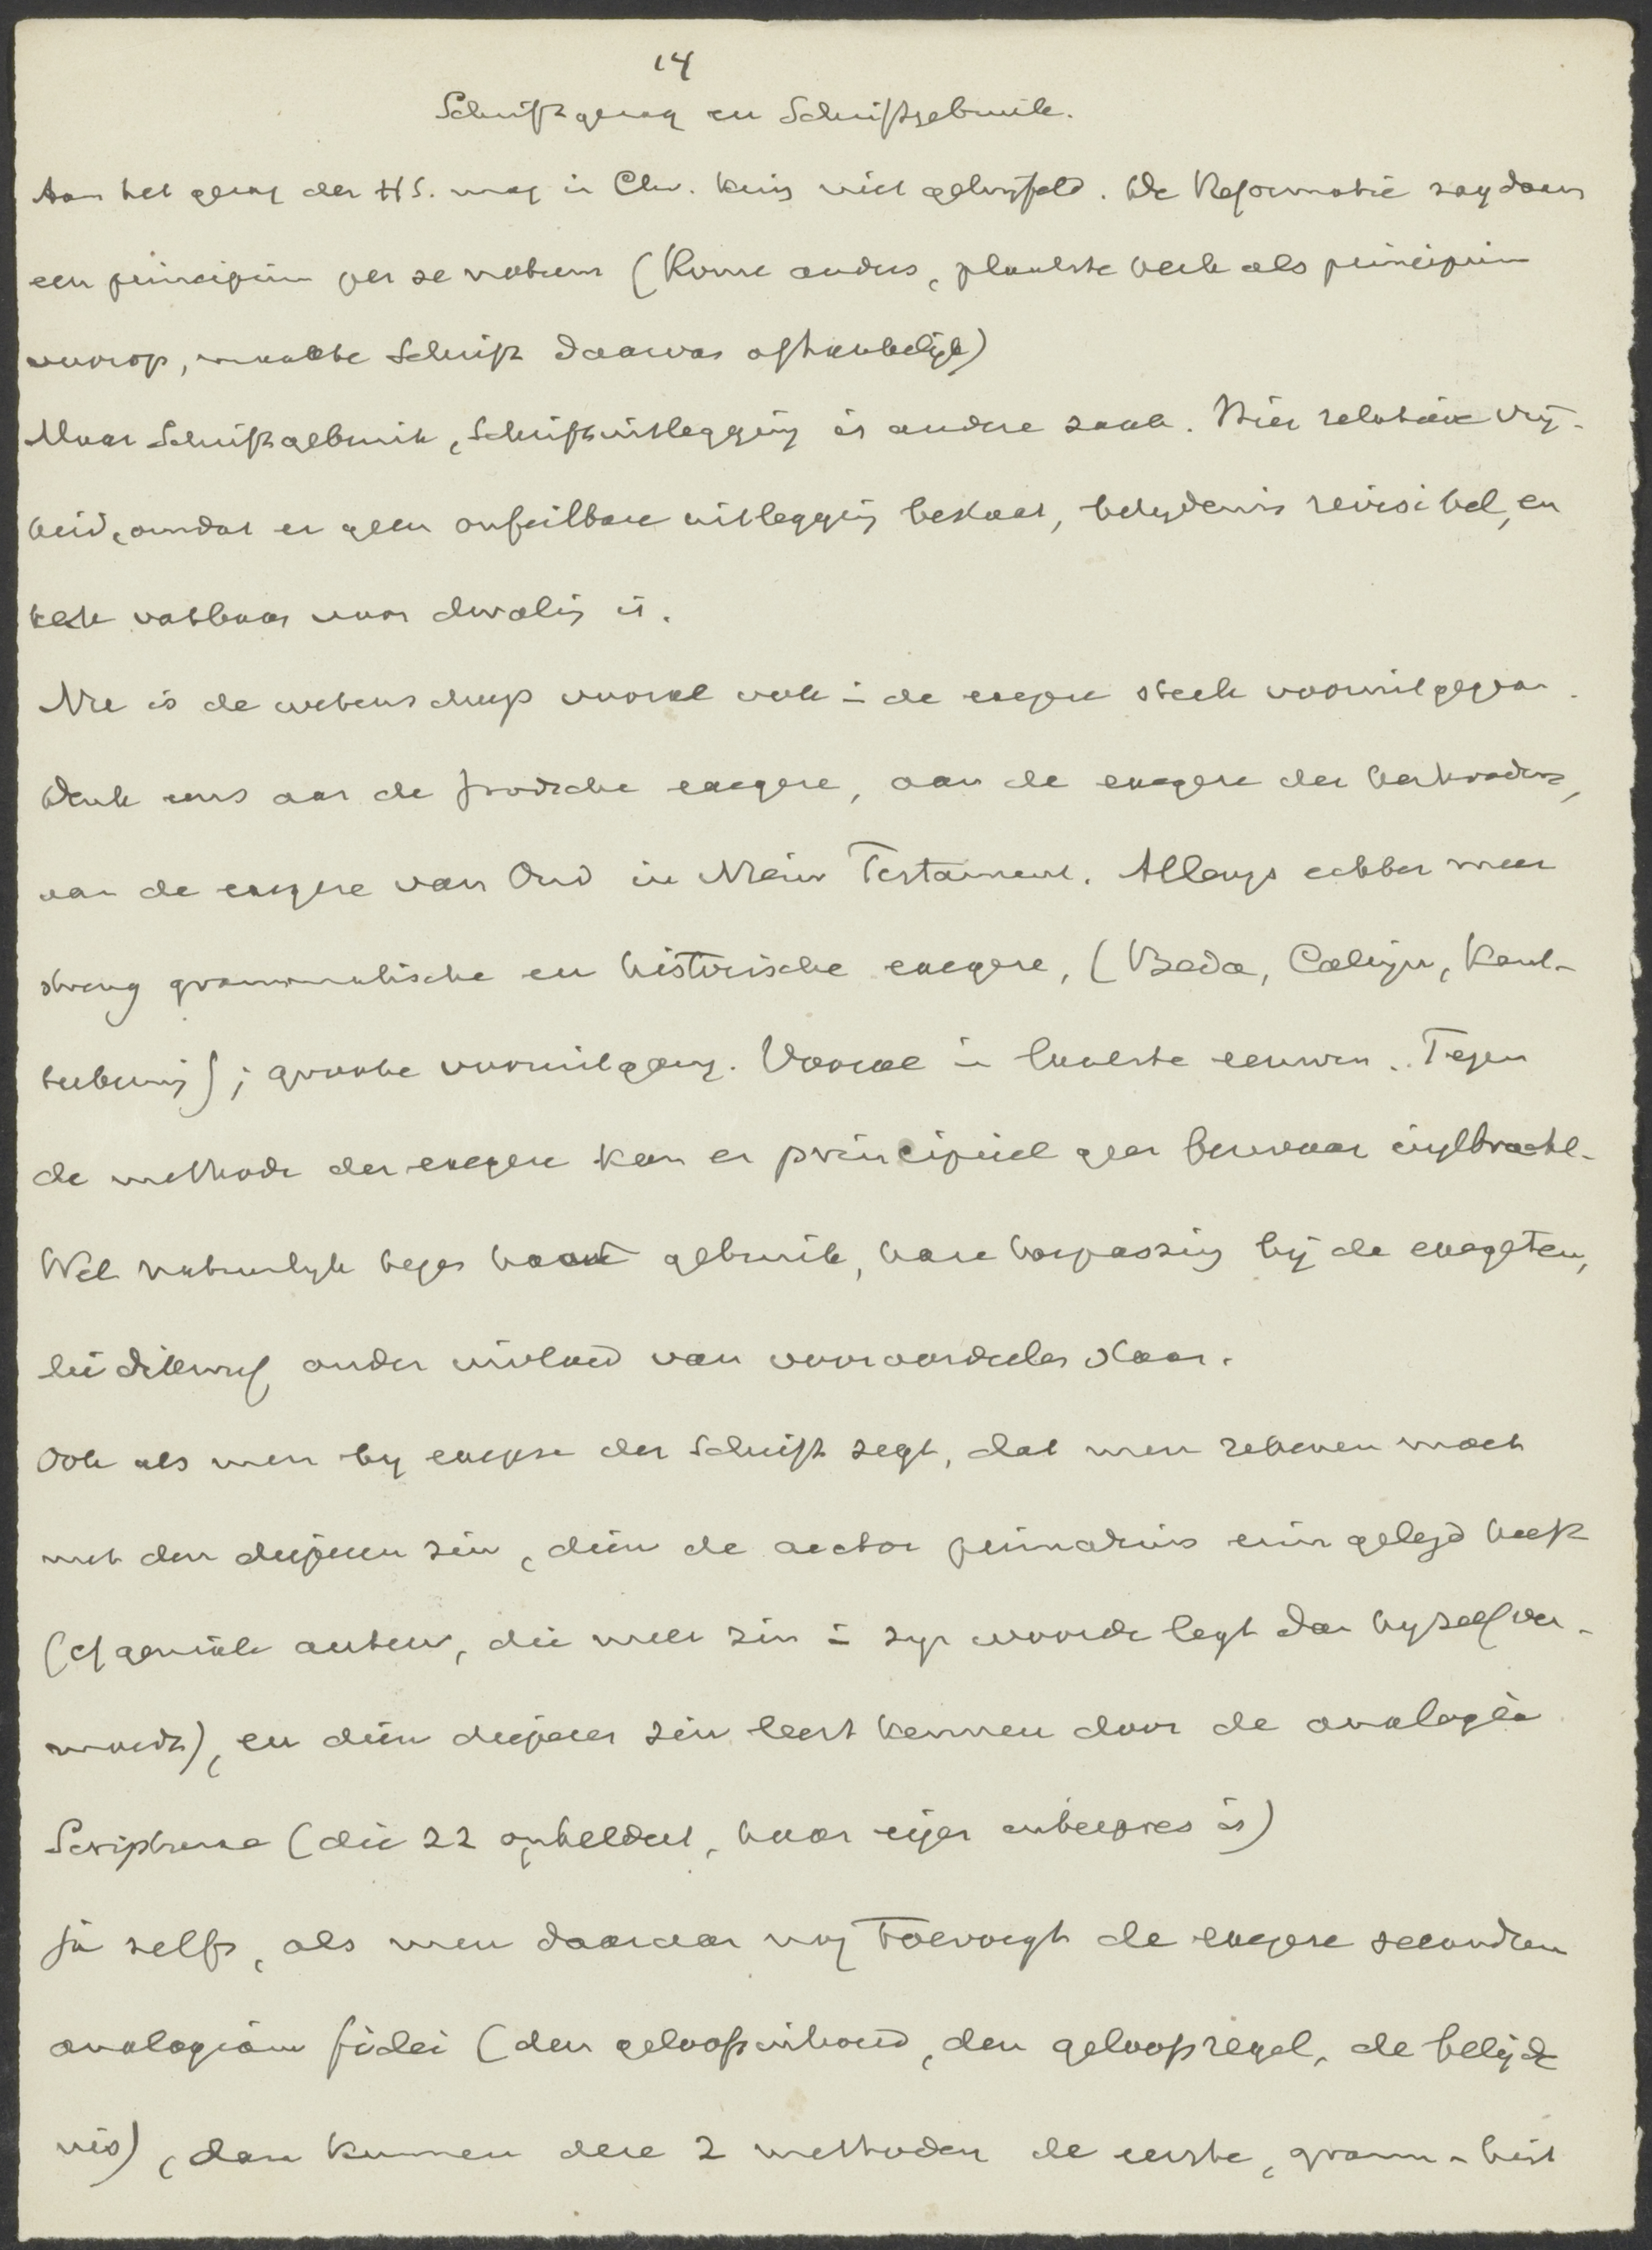 14
Schriftgezag en Schriftgebruik.
Aan het gezag der HS. mag in Chr. kring niet getwijfeld. De Reformatie zag daarin
een principium per se notum (Rome anders, plaatste kerk als principium
voorop, maakte Schrift daarvan afhankelijk)
Maar Schriftgebruik, Schriftuitlegging is andere zaak. Hier relatieve vrij-
heid, omdat er geen onfeilbare uitlegging bestaat, belydenis revisibel, en
kerk vatbaar voor dwaling is.
Nu is de wetenschap vooral ook in de exegese sterk vooruitgegaan.
Denk eens aan de Joodsche exegese, aan de exegese der kerkvaders,
van de exegese van Oud in Nieuw Testament. Allengs echter meer
streng grammatische en historische exegese, (Beda, Calvijn, Kant-
teekening); groote vooruitgang. Vooral in laatste eeuwen. Tegen
de methode der exegese kan er principieel geen bezwaar ingebracht.
Wel natuurlyk tegen haar gebruik, hare toepassing bij de exegeten,
die dikwijls onder invloed van vooroordeelen staan.
Ook als men by exegese der Schrift zegt, dat men rekenen moet
met den dieperen zin, dien de auctor primarius erin gelegd heeft
(cf geniale auteur, die meer zin in zyn woorden legt dan hyzelf ver-
moedt), en dien dieperen zin leert kennen door de analogia
Scripturae (die zz opheldert, haar eigen interpres is)
Ja zelfs, als men daaraan nog toevoegt de exegese secundum
analogiam fidei (den geloofsinhoud, den geloofsregel, de belijde
nis), dan kunnen deze 2 methoden de eerste, gramm-hist